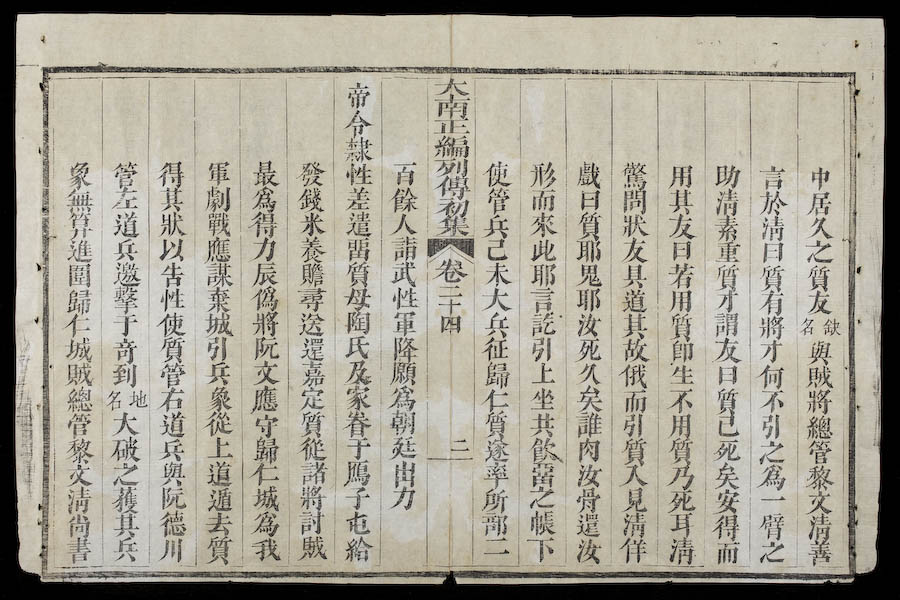 中居久之質友缺名與賊將總管黎文淸善
言於淸曰質有將才何不引之為一臂之
助淸素重質才謂友曰質已死矣安得而
用其友曰若用質卽生不用質乃死耳淸
驚問狀友具道其故俄而引質入見淸佯
戲曰質耶鬼耶汝死久矣誰肉汝骨還汝
形而來此耶言訖引上坐共飮畱之帳下
使管兵己未大兵征歸仁質遂率所部二
大南正編列傳初集 卷二十四 二
百餘人詣武性軍降願為朝廷出力
帝令隸性差遣畱質母陶氏及家眷于鳫子屯給
發錢米養贍尋送還嘉定質從諸將討賊
最為得力辰僞將阮文應守歸仁城為我
軍劇戰應謀棄城引兵象從上道遁去質
得其狀以告性使質管右道兵與阮德川
管左道兵邀擊于奇到地名大破之獲其兵
象無算進圍歸仁城賊總管黎文淸尚書